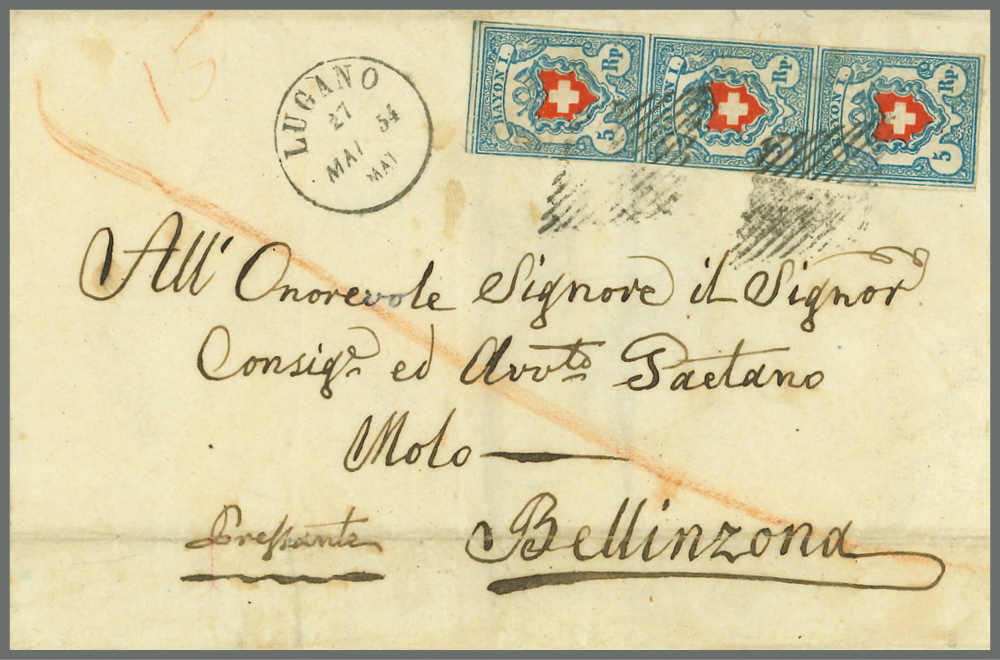 15
LUGANO
27 54
MAI
MAI
RAYON I. 5 Rp.
RAYON I. 5 Rp.
RAYON I. 5 Rp.
All' Onorevole Signore il Signor
Consigre ed Avvto Gaetano
Molo
Pressante
Bellinzona